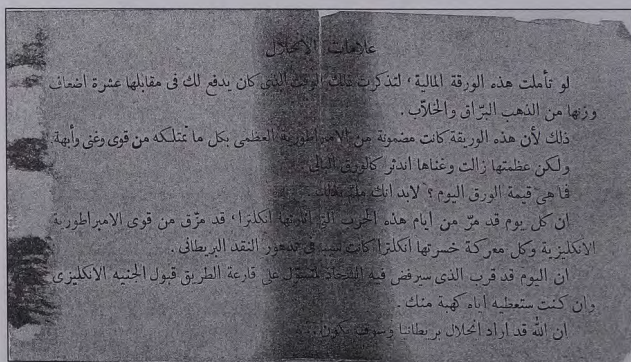 علامات الانحلال
لو تأملت هذه الورقة المالية، لتذكرت ذلك الوقت الذي كان يدفع لك فى مقابلها عشرة أضعاف
وزنها من الذهب البرّاق والخلاّب.
ذلك لأن هذه الوريقة كانت مضمونة من الامبراطورية العظمى بكل ما تمتلكه من قوى وغنى وأبهة
ولكن عظمتها زالت وغناها اندثر كالورق البالى.
فما هي قيمة الورق اليوم؟ لابد انك
ان كل يوم قد مرّ من ايام هذه الحرب التى انكلترا، قد مزّق من قوى الامبراطورية
الانكليزية وكل معركة خسرتها انكلترا كانت فى تدهور النقد البريطانى.
ان اليوم قد قرب الذى سيرفض فيه على قارعة الطريق قبول الجنيه الانكليزى
وان كنت ستعطيه أياه كهبة منك.
ان الله قد اراد انحلال بريطانيا وسوف يكون...